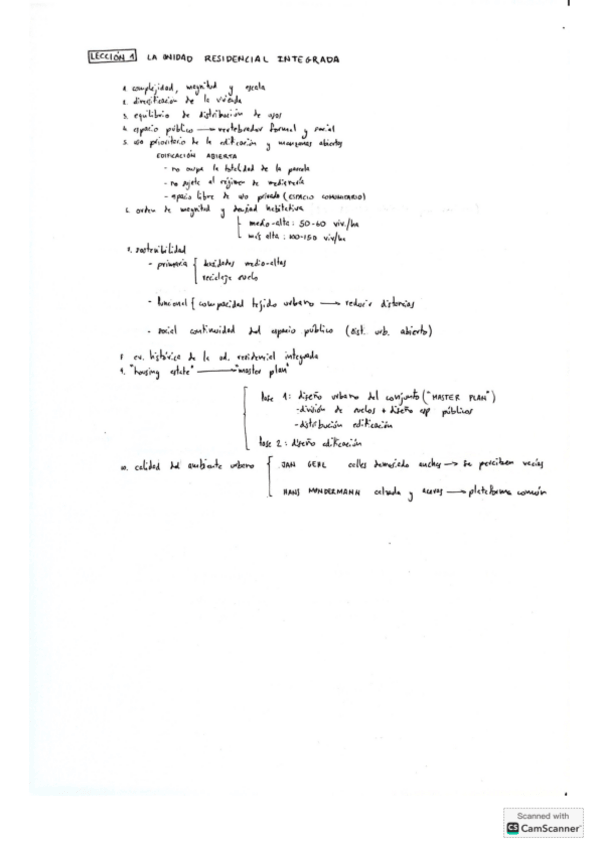 LECCIÓN 1 LA UNIDAD RESIDENCIAL INTEGRADA
1. complejidad, magnitud y escala
2. diversificación de la vivienda
3. equilibrio de distribución de usos
4. espacio público → vertebrador formal y social
5. uso prioritario de la edificación y manzanas abiertas
EDIFICACIÓN ABIERTA
- no ocupa la totalidad de la parcela
- no sujeta al régimen de medianería
- espacio libre de uso privado (ESPACIO COMUNITARIO)
6. orden de magnitud y densidad habitativa
medio-alta: 50-60 viv/ha
más alta: 100-150 viv/ha
7. sostenibilidad
- primaria { densidades medio-altas
reciclaje suelo
- funcional { compacidad tejido urbano → reducir distancias
- social continuidad del espacio público (dist. urb. abierto)
8. ev. histórica de la ud. residencial integrada
9. "housing estate" → "master plan"
fase 1: diseño urbano del conjunto ("MASTER PLAN")
- división de suelos + diseño esp públicos
- distribución edificación
fase 2: diseño edificación
10. calidad del ambiente urbano { JAN GEHL calles demasiado anchas → se perciben vacías
HANS MONDERMANN calzada y aceras → plataforma común
Scanned with
CS CamScanner